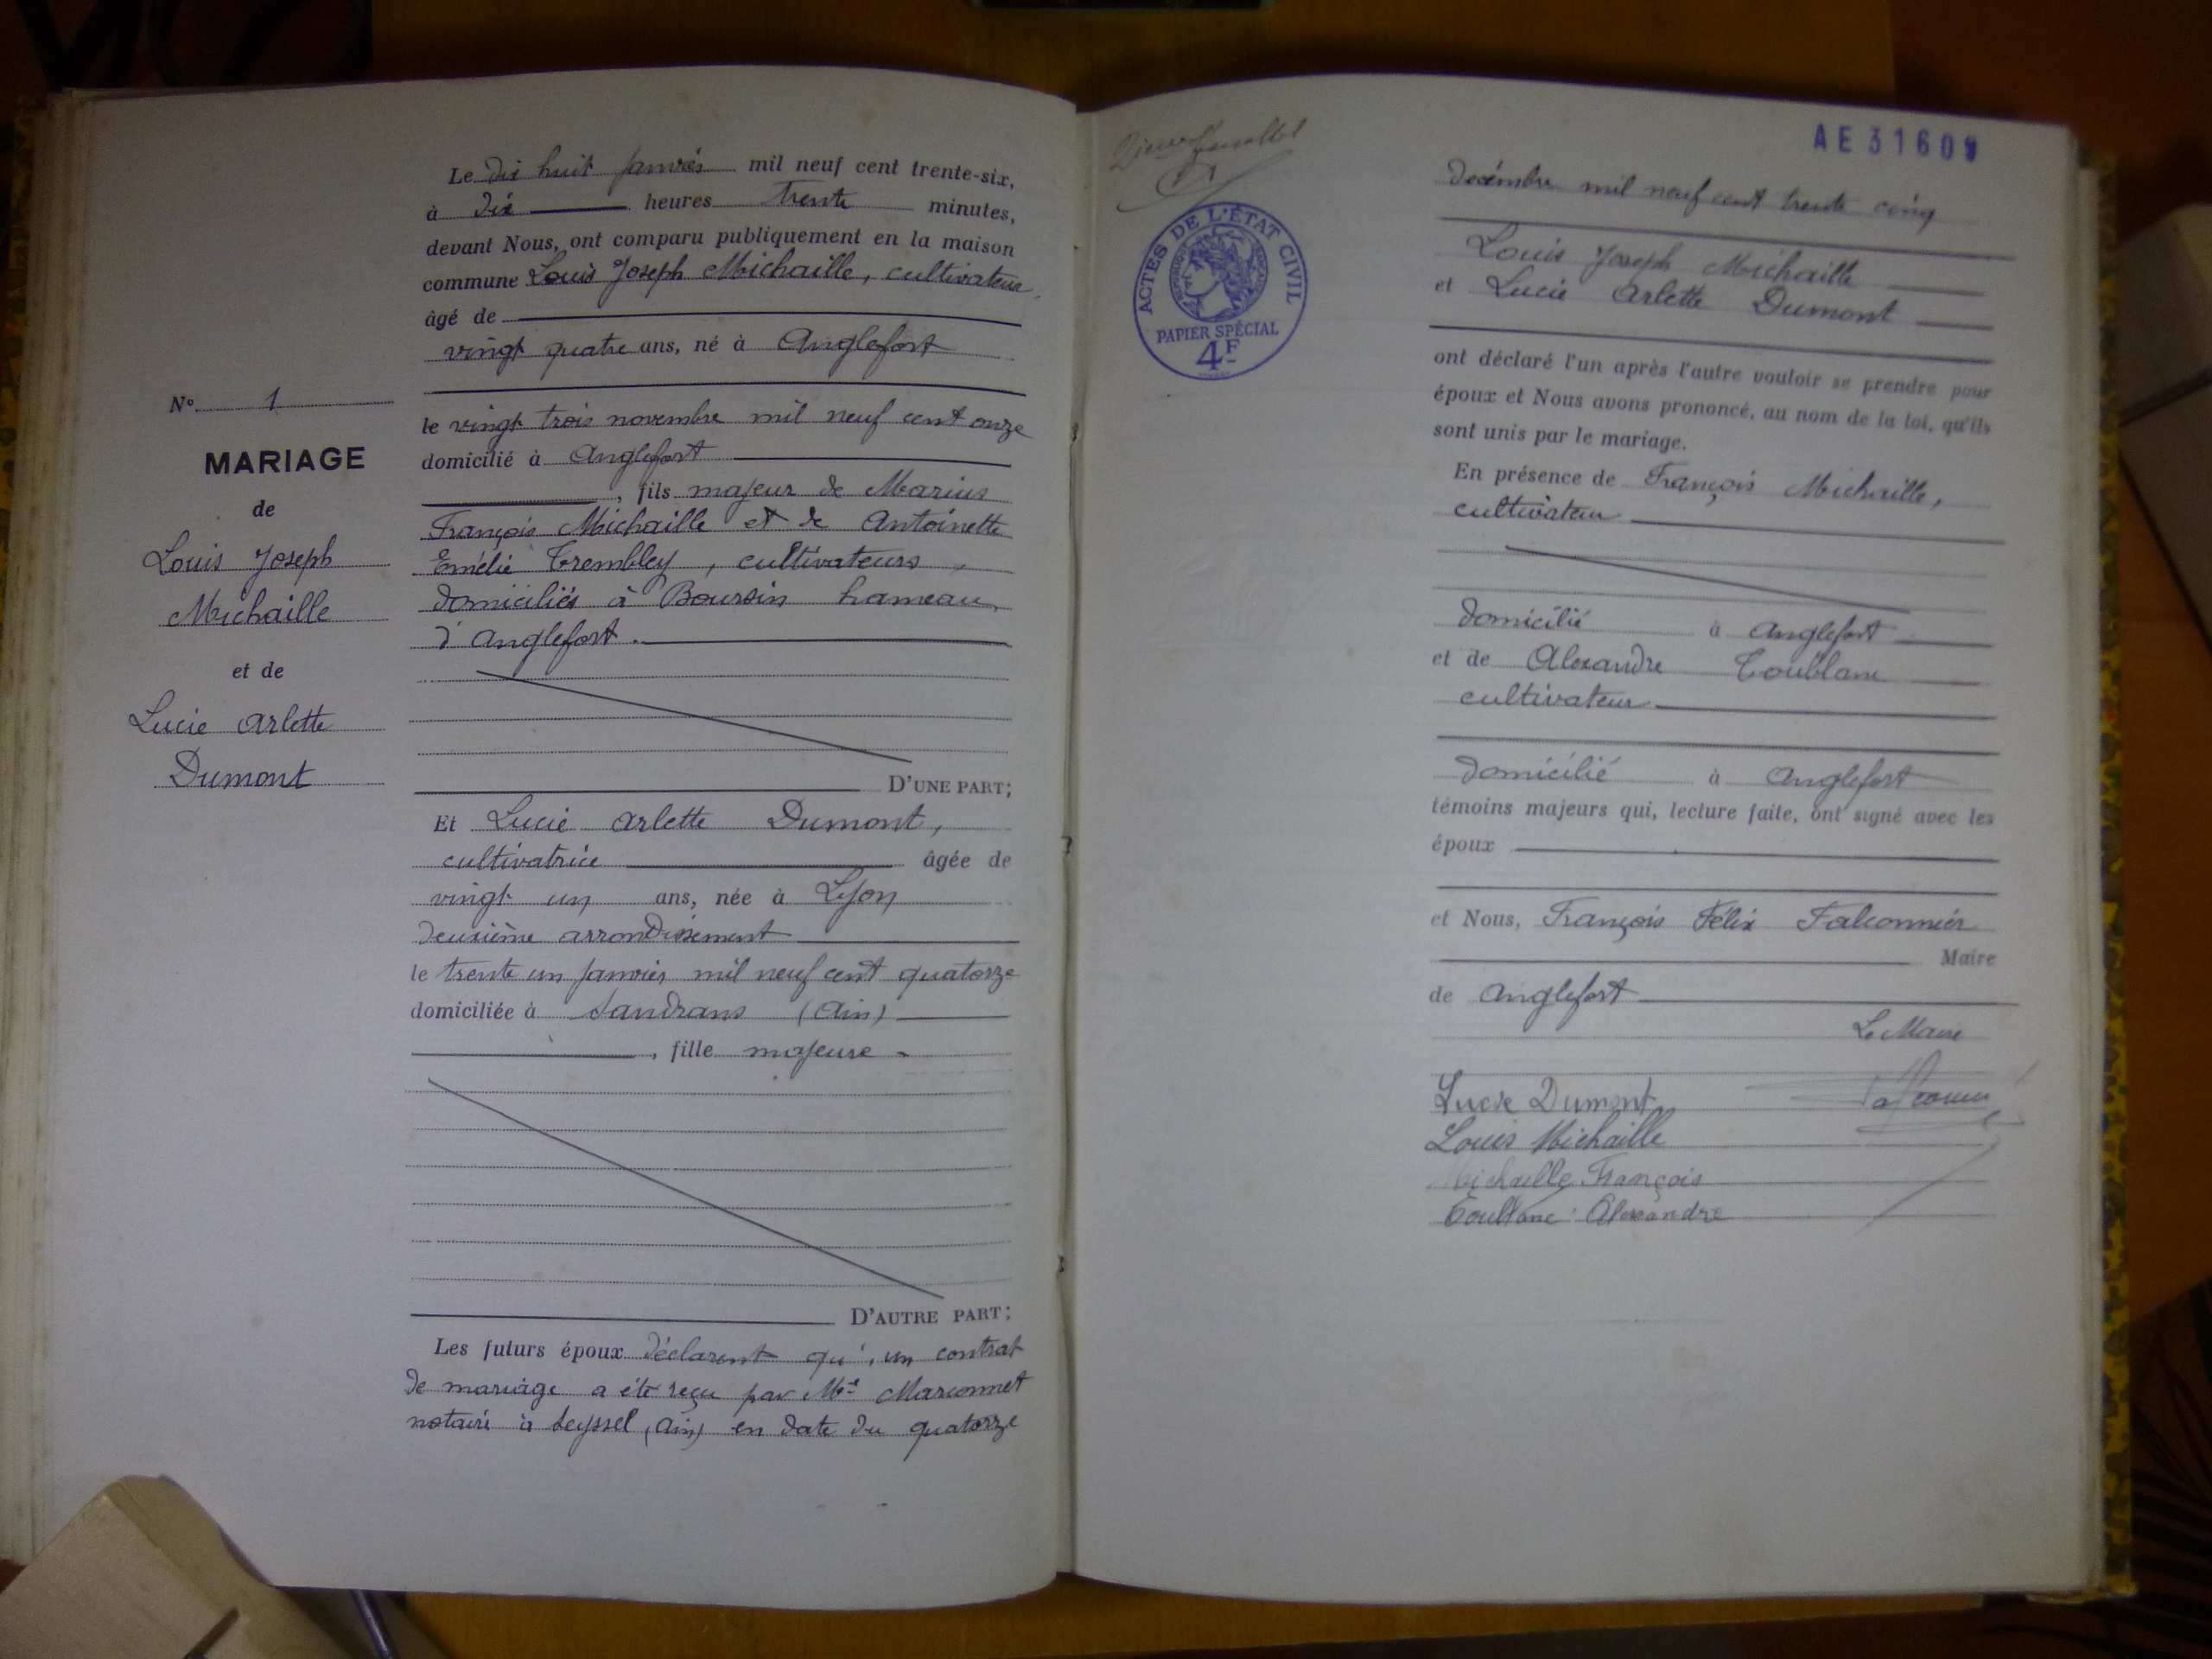 N° 1
MARIAGE
de
Louis Joseph
Michaille
et de
Lucie Arlette
Dumont
Le dix huit janvier mil neuf cent trente-six,
à dix heures trente minutes,
devant Nous, ont comparu publiquement en la maison
commune Louis Joseph Michaille, cultivateur,
âgé de
vingt quatre ans, né à Anglefort
le vingt trois novembre mil neuf cent onze
domicilié à Anglefort
, fils majeur de Marius
François Michaille et de Antoinette
Emélie Trembley, cultivateurs,
domiciliés à Boursin hameau
d'Anglefort.
D'UNE PART;
Et Lucie Arlette Dumont,
cultivatrice âgée de
vingt un ans, née à Lyon
deuxième arrondissement
le trente un janvier mil neuf cent quatorze
domiciliée à Sandrans (Ain)
, fille majeure -
D'AUTRE PART;
Les futurs époux déclarent qu'un contrat
de mariage a été reçu par Me Marconnet
notaire à Seyssel (Ain) en date du quatorze
ACTES DE L'ÉTAT CIVIL
RÉPUBLIQUE FRANÇAISE
PAPIER SPÉCIAL
4F
AE 31609
décembre mil neuf cent trente cinq
Louis Joseph Michaille
et Lucie Arlette Dumont
ont déclaré l'un après l'autre vouloir se prendre pour
époux et Nous avons prononcé, au nom de la loi, qu'ils
sont unis par le mariage.
En présence de François Michaille,
cultivateur
domicilié à Anglefort
et de Alexandre Toublanc
cultivateur
domicilié à Anglefort
témoins majeurs qui, lecture faite, ont signé avec les
époux
et Nous, François Félix Falconnier
Maire
de Anglefort
Le Maire
Lucie Dumont
Louis Michaille
Michaille François
Toublanc Alexandre